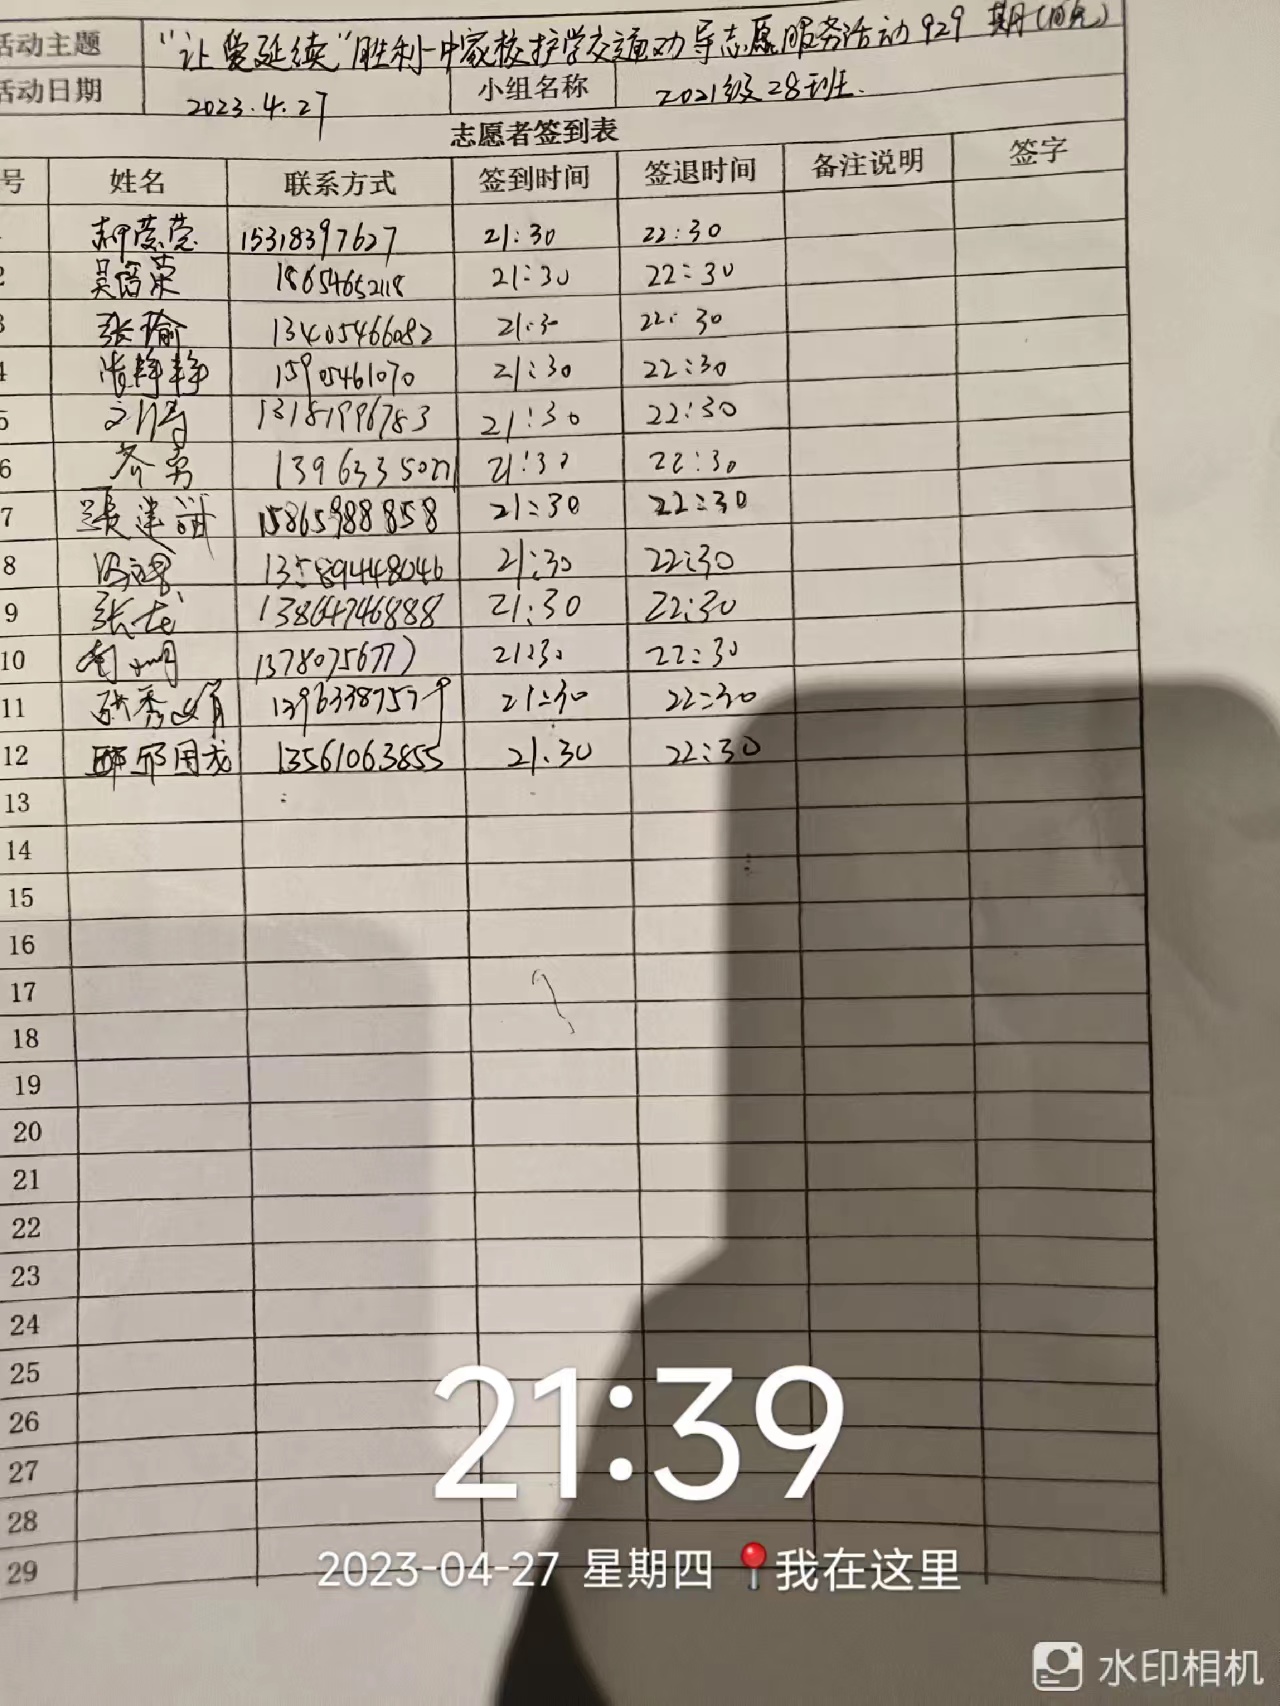 活动主题 "让爱延续"胜利一中家校护学交通劝导志愿服务活动929期(晚)
活动日期 2023.4.27 小组名称 2021级28班.
志愿者签到表
号 姓名 联系方式 签到时间 签退时间 备注说明 签字
15318397627 21:30 22:30
2 18654652118 21:30 22:30
3 张瑜 13405466082 21:30 22:30
4 静静 15905461070 21:30 22:30
5 13181996783 21:30 22:30
6 齐勇 21:30 22:30
7 15865988858 21:30 22:30
8 13589448046 21:30 22:30
9 张龙 13864746888 21:30 22:30
10 21:30 22:30
11 张秀娟 21:30 22:30
12 国龙 13561063855 21:30 22:30
13
14
15
16
17
18
19
20
21
22
23
24
25
26
27
28
29
21:39
2023-04-27 星期四 我在这里
水印相机